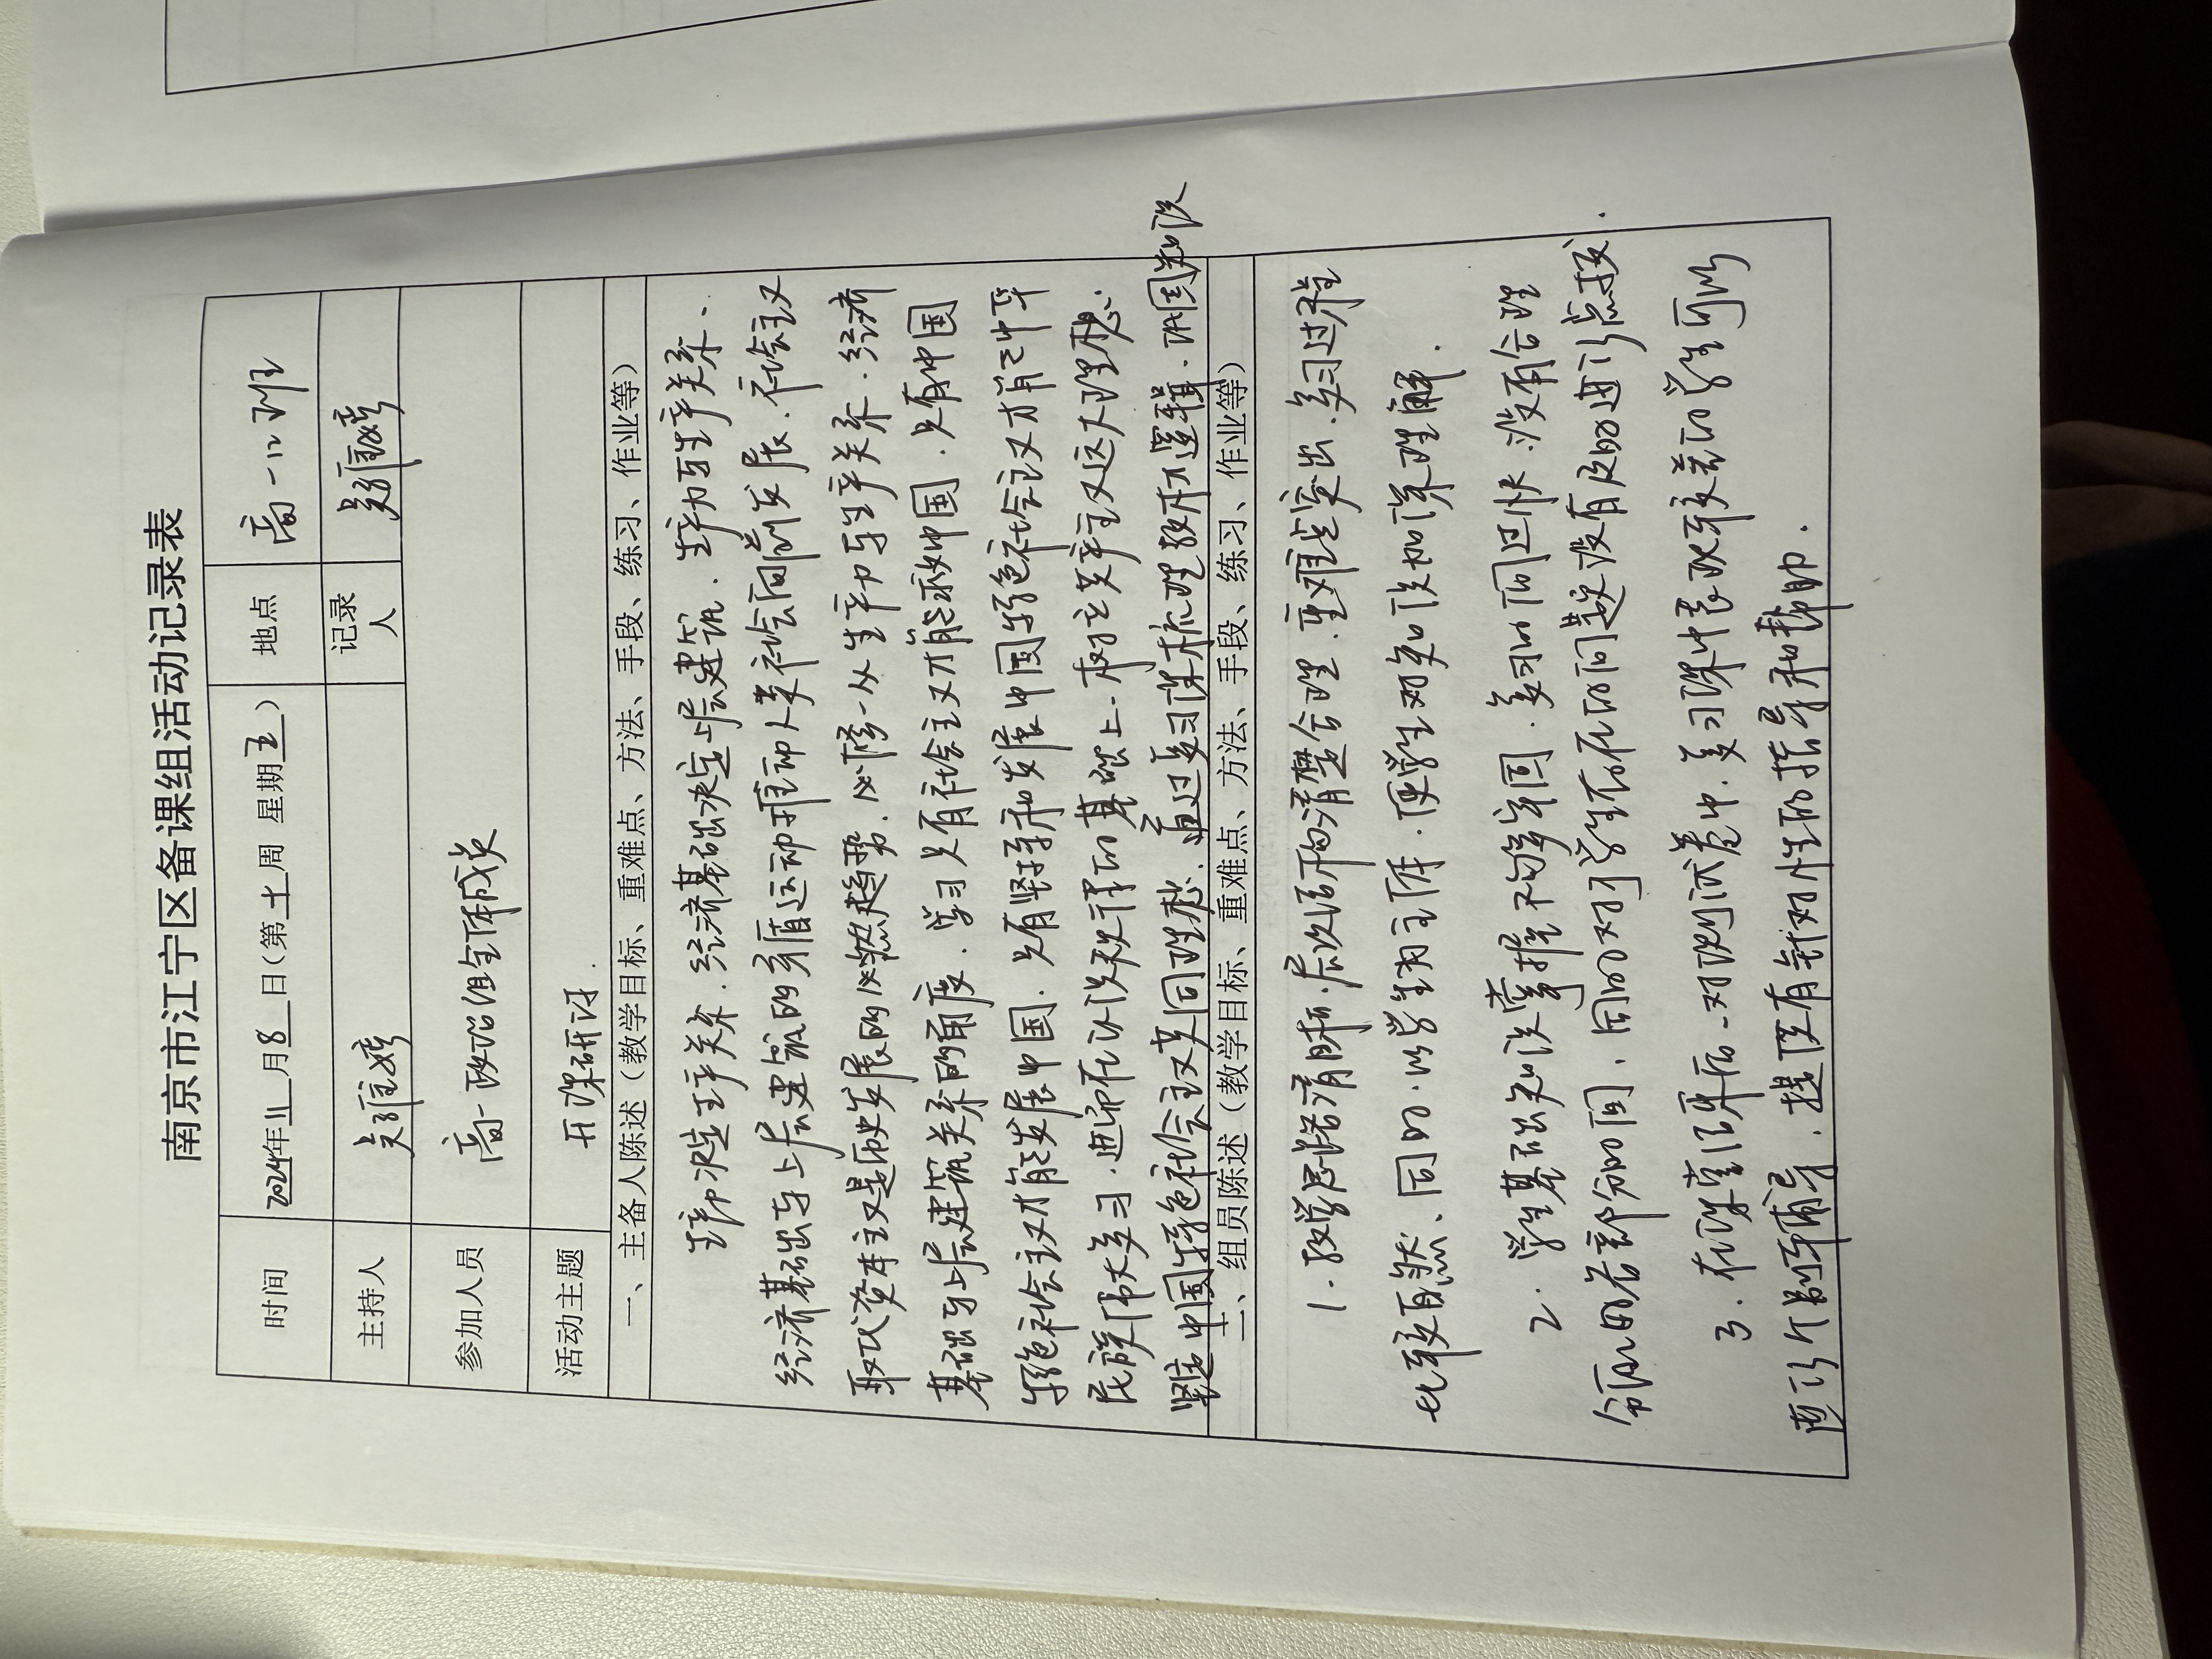 南京市江宁区备课组活动记录表
时间 2024年11月8日(第十周 星期五) 地点 高一12班
主持人 记录人
参加人员 高一政治组全体成员
活动主题 开课研讨.
一、主备人陈述（教学目标、重难点、方法、手段、练习、作业等）
生产力决定生产关系.经济基础决定上层建筑.生产力与生产关系、
经济基础与上层建筑的矛盾运动推动人类社会向前发展.社会主义
取代资本主义是历史发展的必然趋势.必修一从生产力与生产关系.经济
基础与上层建筑关系的角度.学习只有社会主义才能救中国.只有中国
特色社会主义才能发展中国.只有坚持和发展中国特色社会主义才能
民族伟大复习.进而在认识规律的基础上.树立共产主义远大理想.
坚定中国特色社会主义共同理想.通过复习课梳理教材逻辑.巩固知识
二、组员陈述（教学目标、重难点、方法、手段、练习、作业等）
1.教学思路清晰.层次结构清楚合理.重难点突出.复习过程
比较自然、同时.以学生为主体.使学生对知识加深理解.
2.学生基础知识掌握不够牢固.复习时间过快.没有合理
分配的各部分时间、同时对学生存在的问题没有及时进行点拨.
3.在课堂结束后.对测试卷中.复习课中表现较差的学生可以
进行个别辅导.提供有针对性的指导和帮助.